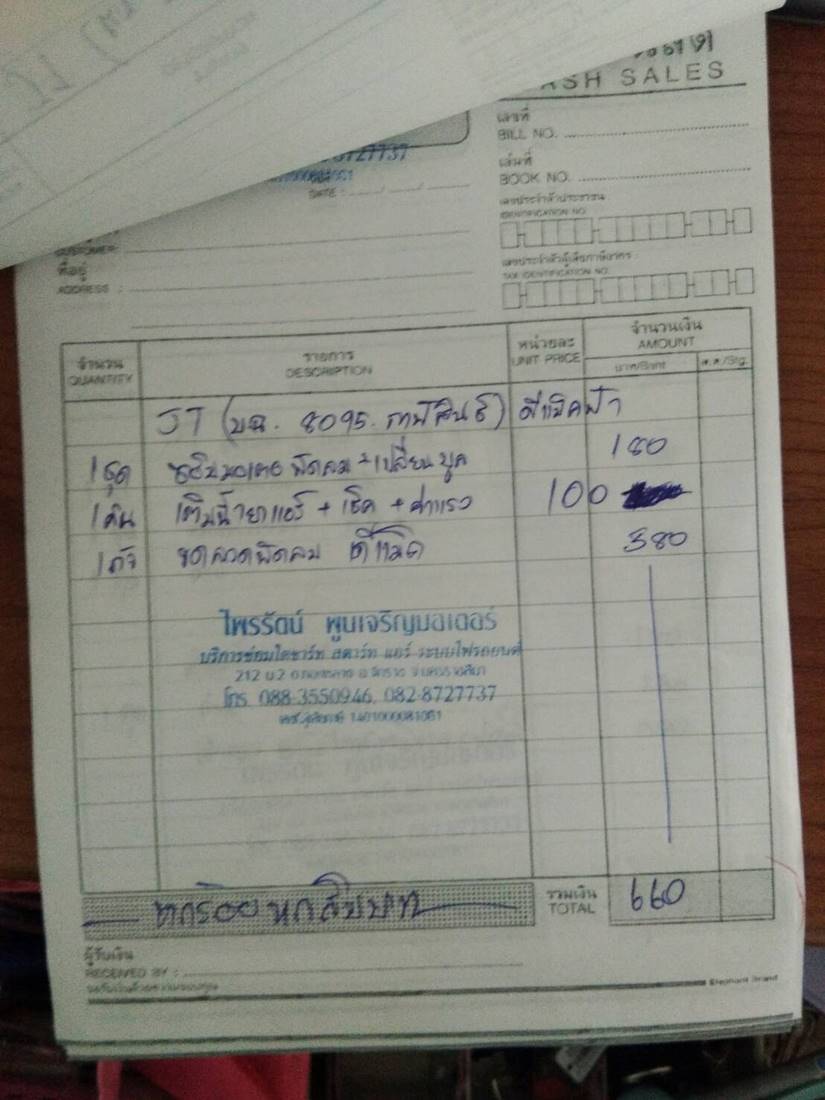 CASH SALES
เลขที่
BILL NO.
เล่มที่
BOOK NO.
เลขประจำตัวประชาชน
IDENTIFICATION NO.
DATE :
CUSTOMER
ที่อยู่
ADDRESS :
เลขประจำตัวผู้เสียภาษีอากร
TAX IDENTIFICATION NO.
จำนวน QUANTITY รายการ DESCRIPTION หน่วยละ UNIT PRICE จำนวนเงิน AMOUNT
บาท/Baht ส.ต./Stg.
JT (บฉ. 8095. กาฬสินธุ์) ดีแม็คฟ้า
1 ชุด มอเตอพัดลม + เปลี่ยนบูต 180
1 คัน เติมน้ำยาแอร์ + เช็ค + ค่าแรง 100
1 ตัว ขดลวดพัดลม ดีแม็ค 380
ไพรรัตน์ พูนเจริญมอเตอร์
บริการซ่อมไดชาร์ท สตาร์ท แอร์ ระบบไฟรถยนต์
212 ม.2
โทร. 088-3550946, 082-8727737
หกร้อยหกสิบบาท
รวมเงิน
TOTAL 660
ผู้รับเงิน
RECEIVED BY :
Elephant Brand